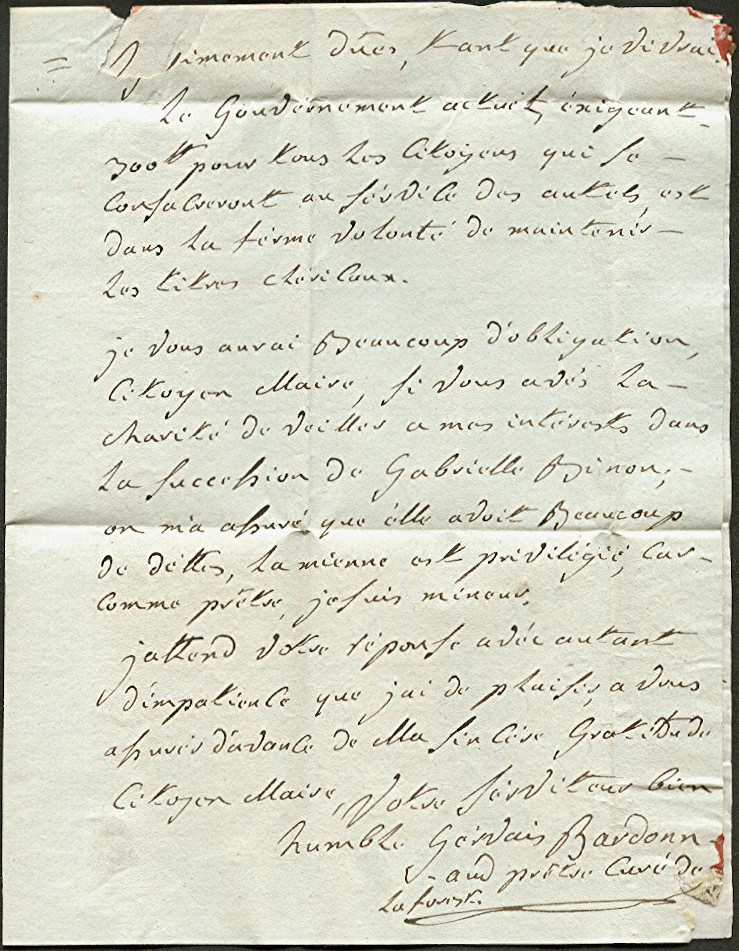 = l[é]gitimement dües, tant que je vivrai
Le Gouvérnement actuel, éxigeant
300tt pour tous les Citoyens qui se –
consacreront au sérvice des autels, est
dans la férme volonté de mainteniŕ –
les titres cléricaux.
je vous aurai Beaucoup d'obligation,
Citoyen Maire, si vous avés la –
charité de veiller a mes intérests dans
la succession de Gabrielle Binon; –
on m'a assuré que élle avoit Beaucoup
de déttes, la mienne est privilégié, car –
comme prêtre, je suis mineur.
jattend votre réponse avéc autant
d'impatience que j'ai de plaisir, a vous
assurér d'avance de Ma sincére Gratitude
Citoyen Maire, Votre sérviteur bien
humble Gérvais Bardonn-
- aud prêtre Curé de
la forest.